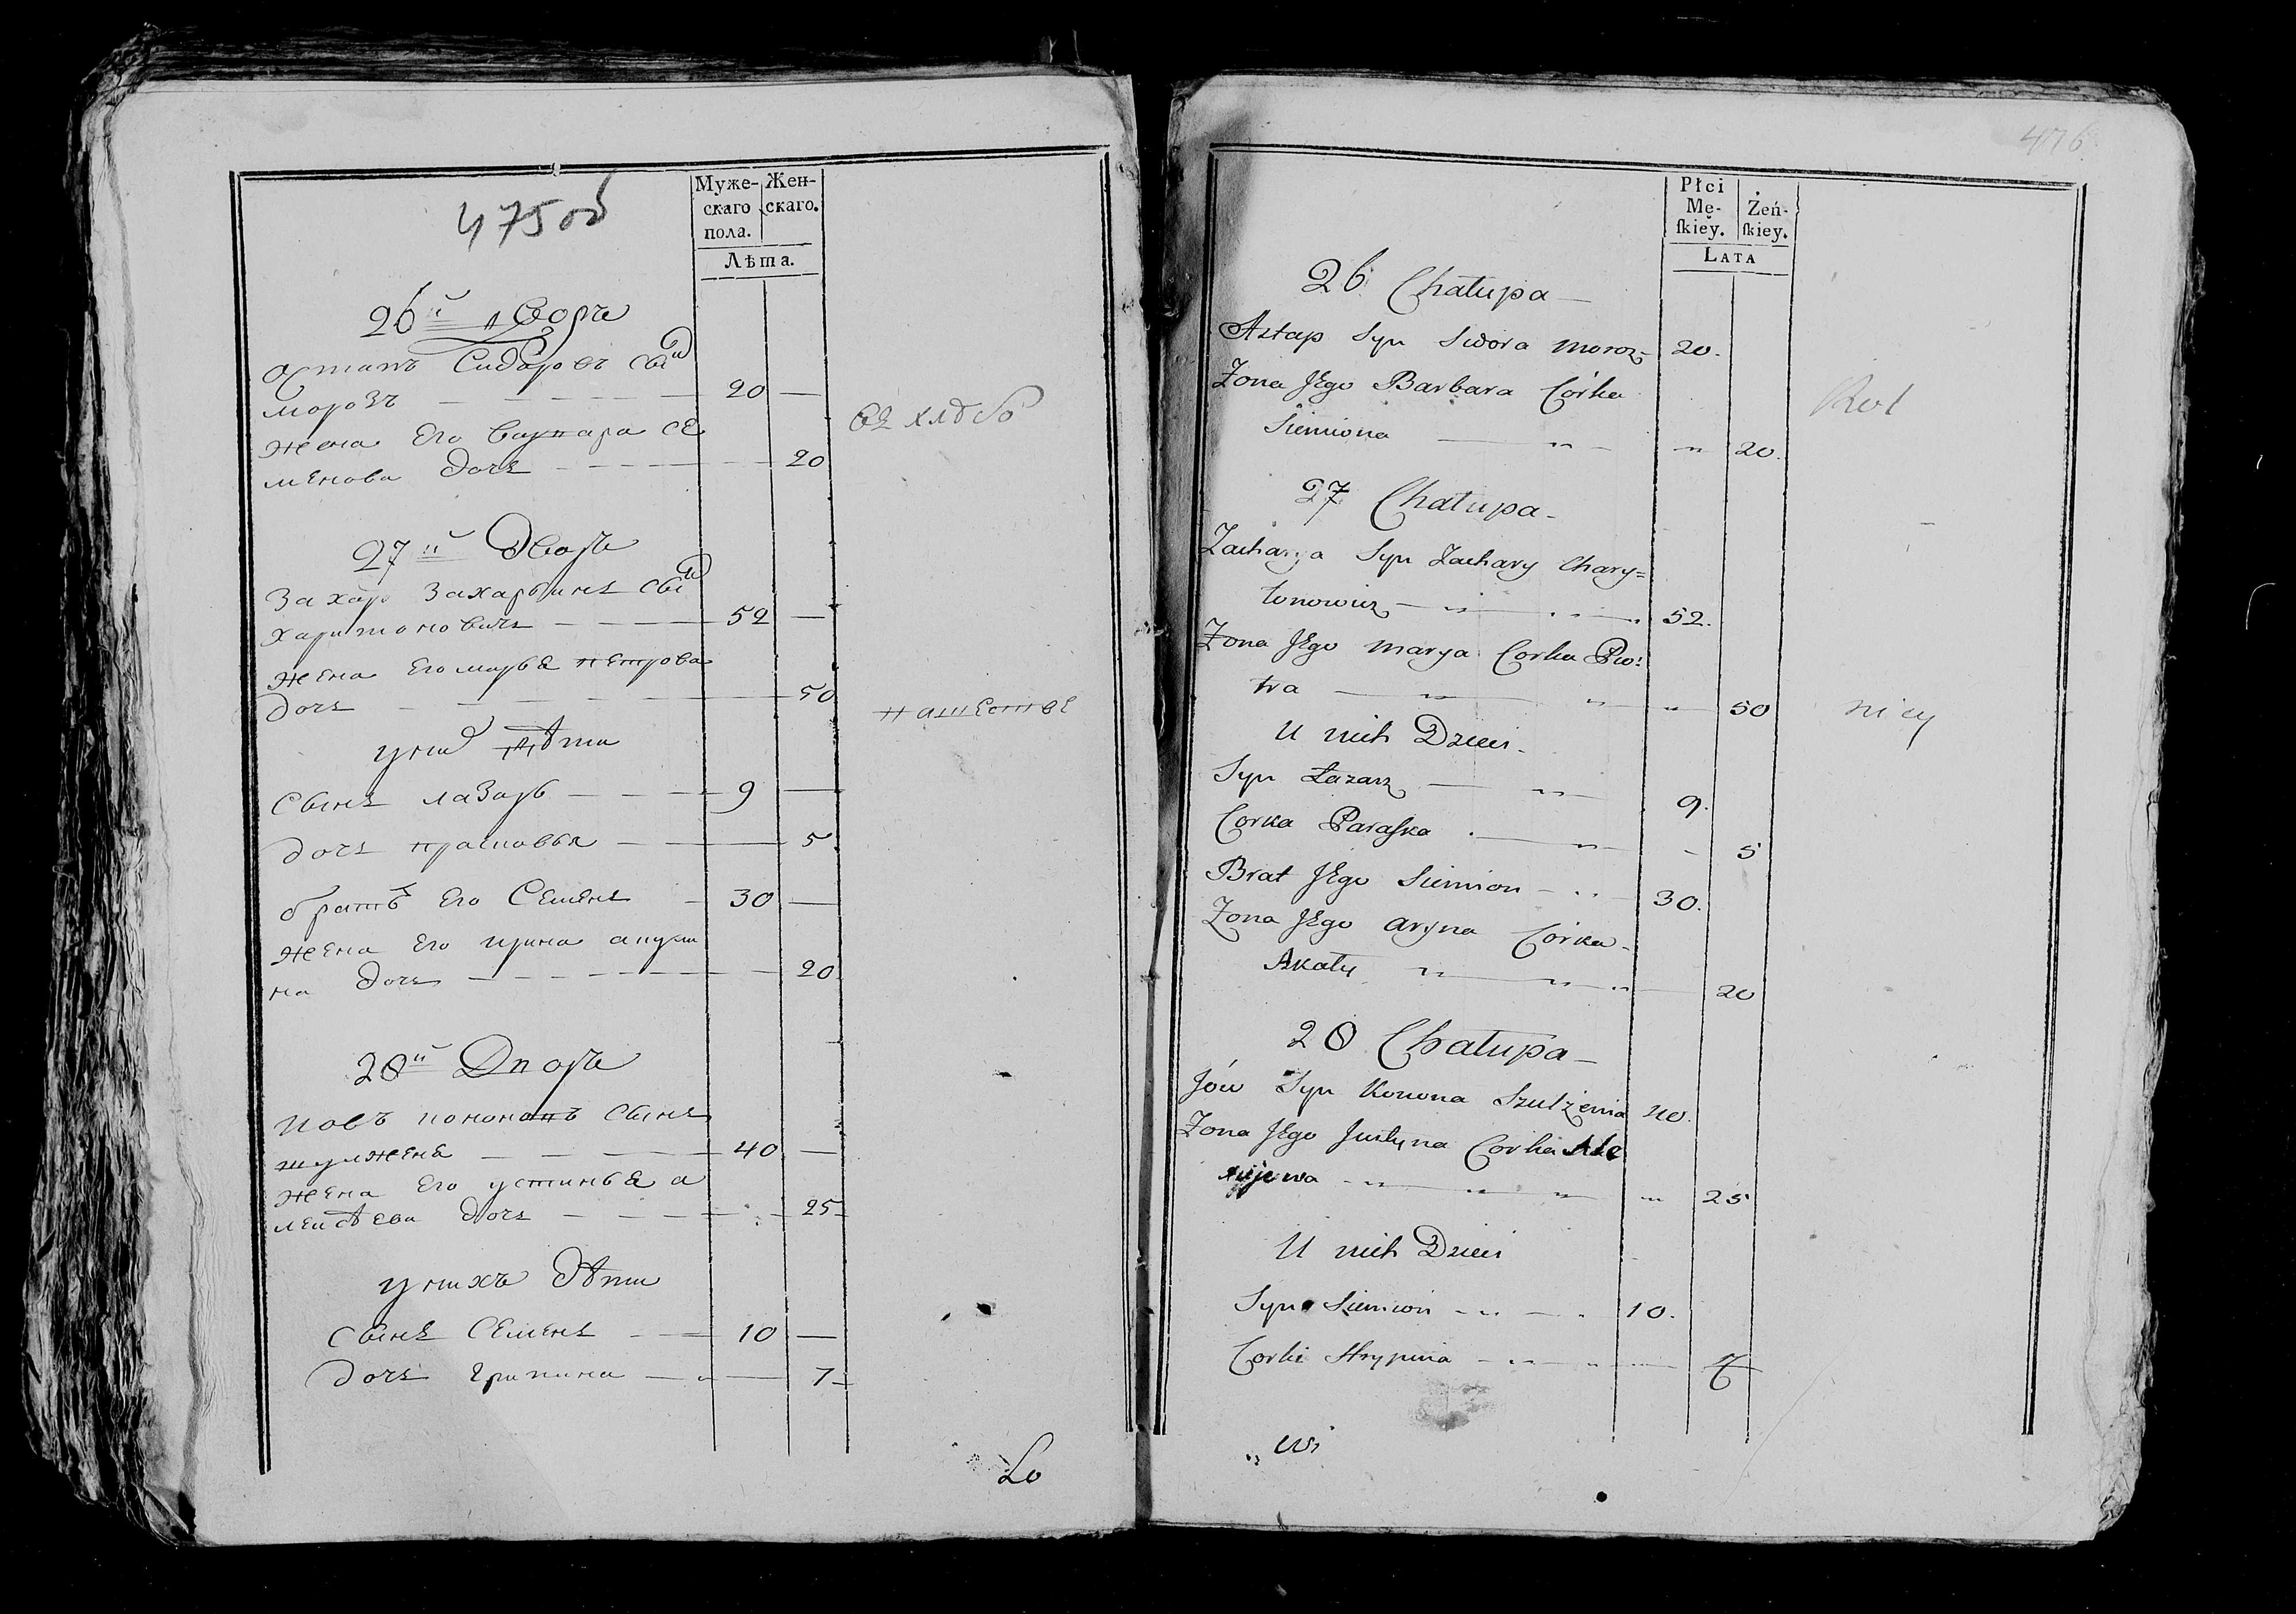 475об
Муже- Жен-
скаго скаго.
пола.
Лѣта.
26й дворъ
Остапъ Сидоровъ сын
морозъ 20
жена Его варвара се
менова дочь 20
27й Дворъ
Захаръ Захарьинъ сын
харитоновичъ 52
жена Его марья петрова
дочь 50
у них дѣти
сынъ лазарь 9
дочь прасковья 5
братъ Его Семенъ 30
жена Его ирина
на дочь 20
28й Дворъ
иовъ кононовъ сынъ
шулженя 40
жена Его устинья а
леисѣева дочь 25
у нихъ дѣти
сынъ Семенъ 10
дочь Грипина 7
476
Płci
Mę- Żeń-
skiey. skiey.
LATA
26 Chałupa
Astap Syn Sidora Moroz 20.
Żona Jego Barbara Córka
Siemiona 20.
27 Chałupa
Zacharya Syn Zachary Chary=
tonowicz 52.
Żona Jego Marya Corka Pio:
tra 50
nicy
U nich Dzieci
Syn Łazarz 9.
Corka Paraska 5
Brat Jego Siemion 30.
Żona Jego Aryna Córka
20
28 Chałupa
Jów Syn Konona Szulżenia 40.
Żona Jego Justyna Corka Ale
xiejewa 25
U nich Dzieci
Syn Siemion 10.
Corki Hrypina 7